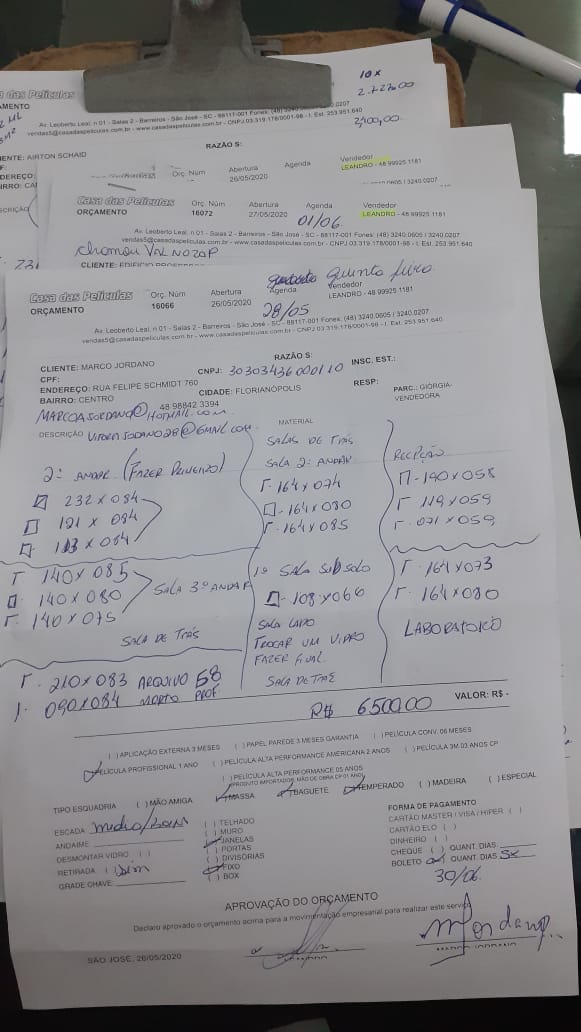 10x
2.727,00
2,400,00
Casa das Películas
Av. Leoberto Leal, n 01 - Salas 2 - Barreiros - São José - SC - 88117-001 Fones: (48) 3240.0605 / 3240.0207
vendas5@casadaspeliculas.com.br - www.casadaspeliculas.com.br - CNPJ 03.319.178/0001-98 - I. Est. 253.951.640
RAZÃO S:
CLIENTE: AIRTON SCHAID
Orç. Núm
Abertura
26/05/2020
Agenda
Vendedor
LEANDRO - 48 99925 1181
Casa das Películas
ORÇAMENTO
Orç. Núm
16072
Abertura
27/05/2020
Agenda
01/06
Vendedor
LEANDRO - 48 99925 1181
Av. Leoberto Leal, n 01 - Salas 2 - Barreiros - São José - SC - 88117-001 Fones: (48) 3240.0605 / 3240.0207
vendas5@casadaspeliculas.com.br - www.casadaspeliculas.com.br - CNPJ 03.319.178/0001-98 - I. Est. 253.951.640
chamou VAL NO ZAP
Casa das Películas
ORÇAMENTO
Orç. Núm
16066
Abertura
26/05/2020
Agenda
28/05
quinta feira
Vendedor
LEANDRO - 48 99925 1181
Av. Leoberto Leal, n 01 - Salas 2 - Barreiros - São José - SC - 88117-001 Fones: (48) 3240.0605 / 3240.0207
vendas5@casadaspeliculas.com.br - www.casadaspeliculas.com.br - CNPJ 03.319.178/0001-98 - I. Est. 253.951.640
CLIENTE: MARCO JORDANO
RAZÃO S:
CPF:
CNPJ: 30303436000110
INSC. EST.:
ENDEREÇO: RUA FELIPE SCHMIDT 760
BAIRRO: CENTRO
CIDADE: FLORIANÓPOLIS
RESP:
PARC.: GIORGIA-
VENDEDORA
48 98842 3394
MARCOAJORDANO@HOTMAIL.COM
DESCRIÇÃO
MATERIAL
2º ANDAR (FAZER PRIMEIRO)
232 x 084
121 x 084
113 x 084
140 x 085
140 x 080
140 x 075
SALA 3º ANDAR
SALA DE TRÁS
210 x 083 ARQUIVO
090 x 084 MORTO
SALAS DE TRÁS
SALA 2º ANDAR
164 x 074
164 x 080
164 x 085
1º SALA SUBSOLO
108 x 066
SALA LADO
TROCAR UM VIDRO
FAZER FINAL
SALA DE TRÁS
RECPÇÃO
190 x 058
119 x 059
071 x 059
164 x 073
164 x 080
LABORATÓRIO
R$ 6500,00
VALOR: R$ -
( ) APLICAÇÃO EXTERNA 3 MESES ( ) PAPEL PAREDE 3 MESES GARANTIA ( ) PELÍCULA CONV. 06 MESES
PELÍCULA PROFISSIONAL 1 ANO ( ) PELÍCULA ALTA PERFORMANCE AMERICANA 2 ANOS ( ) PELÍCULA 3M 03 ANOS CP
( ) PELÍCULA ALTA PERFORMANCE 05 ANOS
PRODUTO IMPORTADOS, MÃO DE OBRA CP 01 ANO
TIPO ESQUADRIA ( ) MÃO AMIGA MASSA BAGUETE TEMPERADO ( ) MADEIRA ( ) ESPECIAL
ESCADA medio/Bom
ANDAIME
DESMONTAR VIDRO ( )
RETIRADA ( ) Sim
GRADE CHAVE
( ) TELHADO
( ) MURO
JANELAS
( ) PORTAS
( ) DIVISÓRIAS
FIXO
( ) BOX
FORMA DE PAGAMENTO
CARTÃO MASTER / VISA / HIPER ( )
CARTÃO ELO ( )
DINHEIRO ( )
CHEQUE ( ) QUANT. DIAS
BOLETO QUANT. DIAS
30/06
APROVAÇÃO DO ORÇAMENTO
Declaro aprovado o orçamento acima para a movimentação empresarial para realizar este serviço
SÃO JOSÉ, 26/05/2020